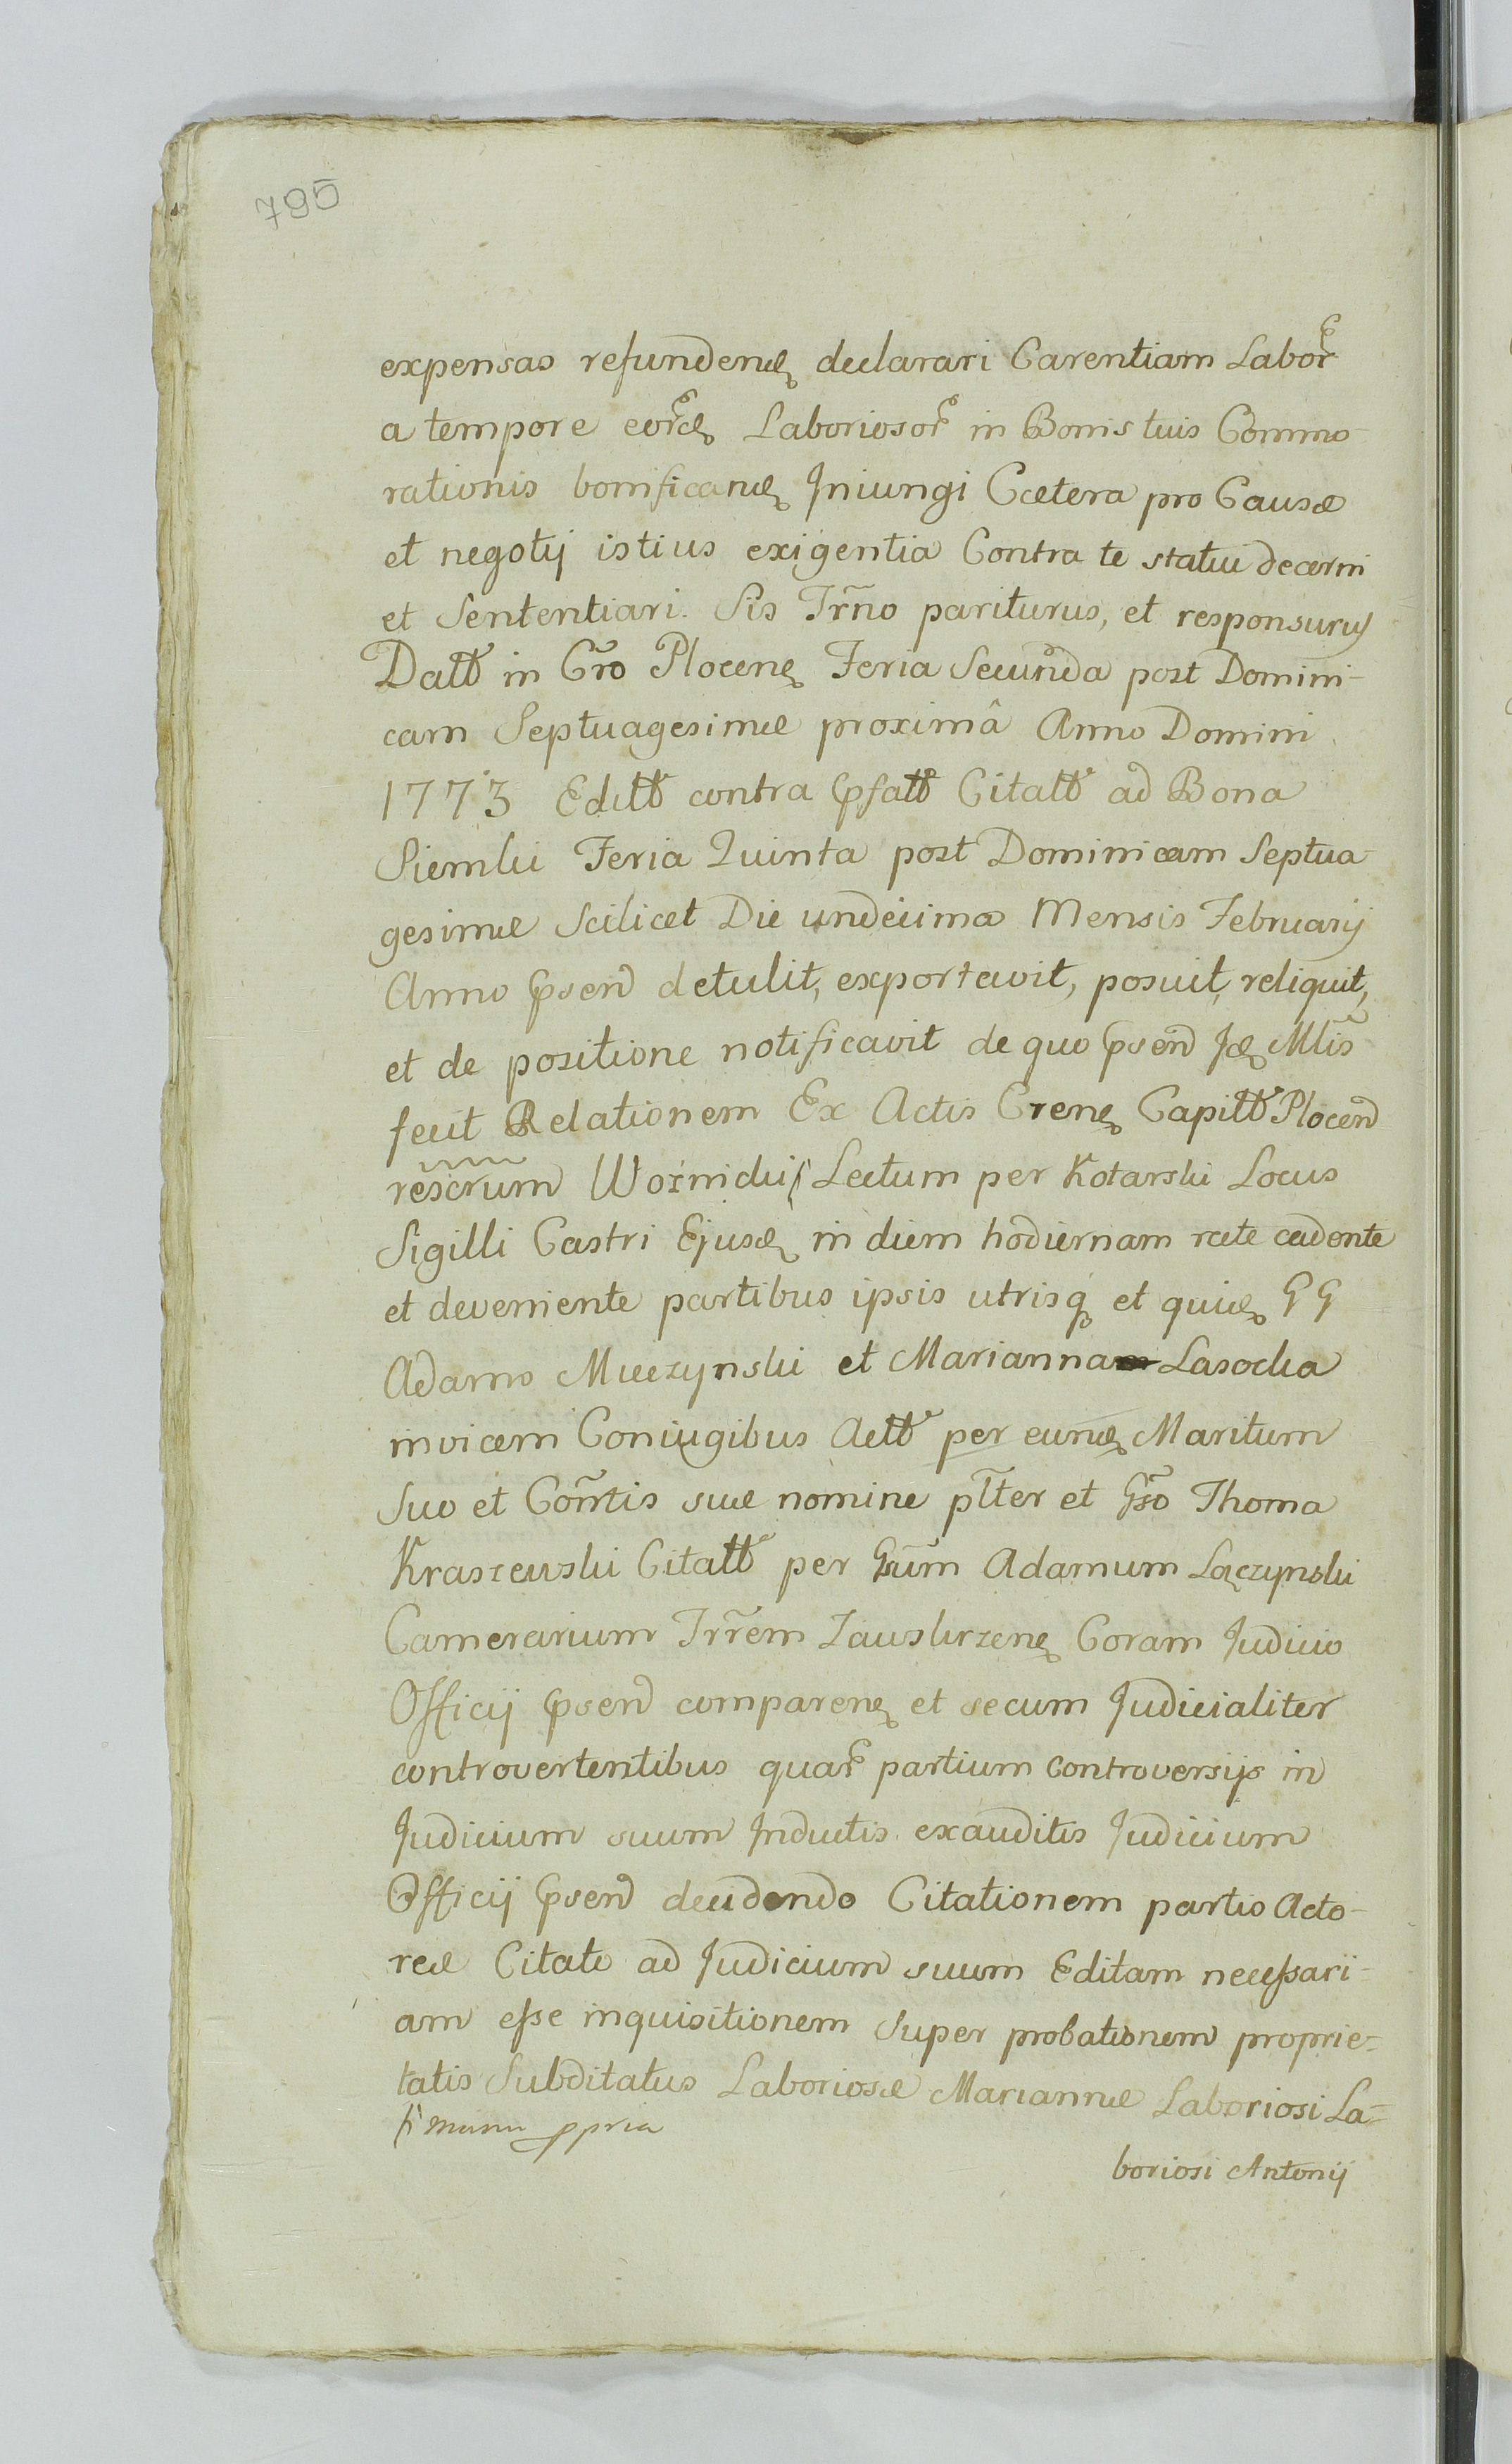 795
expensas refundend declarari Carentiam Labor
a tempore eord Laboriosor in Bonis tuis Commo
rationis bonificand Jniungi Cætera pro Causæ
et negotij istius exigentia Contra te statui decerni
et Sententiari. Sis Trno pariturus, et responsurus
Datt in Cro Plocen Feria Secunda post Domini-
cam Septuagesimæ proximâ Anno Domini
1773 Editt contra psatt Citatt ad Bona
Siemki Feria Quinta post Dominicam Septua
gesimæ Scilicet Die undecima Mensis Februarij
Anno psen detulit, exportavit, posuit, reliquit,
et de positione notificavit de quo psen Jd Mlis
fecit Relationem Ex Actis Cren Capitt Plocen
rescrum Woźnicki Lectum per Kotarski Locus
Sigilli Castri Ejusd in diem hodiernam rate cadente
et deveniente partibus ipsis utrisq et quid GG
Adamo Mieczynski et Marianna Lasocka
invicem Coniugibus Actt per eund Maritum
Suo et Contis suæ nomine plter et Gso Thoma
Kraszewski Citatt per Gsum Adamum Łączynski
Camerarium Trrem Zauskrzen Coram Judicio
Officij psen comparen et secum Judicialiter
controvertentibus quar partium controversijs in
Judicium suum Jnductis exauditis Judicium
Officij psen decidendo Citationem partis Acto-
reæ Citato ad Judicium suum Editam necessari-
am esse inquisitionem Super probationem proprie-
tatis Subditatus Laboriosæ Mariannæ Laboriosi La-
manu ppria
boriosi Antonij